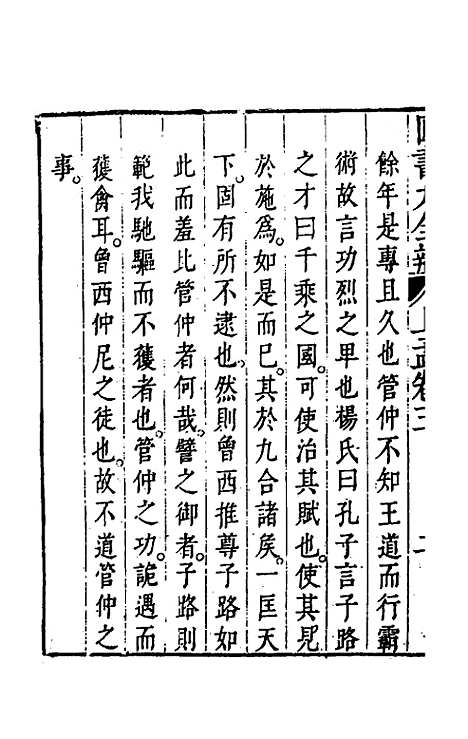 四書大全辯 上孟卷三 二
餘年是專且久也管仲不知王道而行霸
術故言功烈之卑也楊氏曰孔子言子路
之才曰千乘之國。可使治其賦也。使其見
於施爲。如是而已。其於九合諸侯。一匡天
下。固有所不逮也。然則曾西推尊子路如
此而羞比管仲者何哉。譬之御者。子路則
範我馳驅而不獲者也。管仲之功。詭遇而
獲禽耳。曾西仲尼之徒也。故不道管仲之
事。